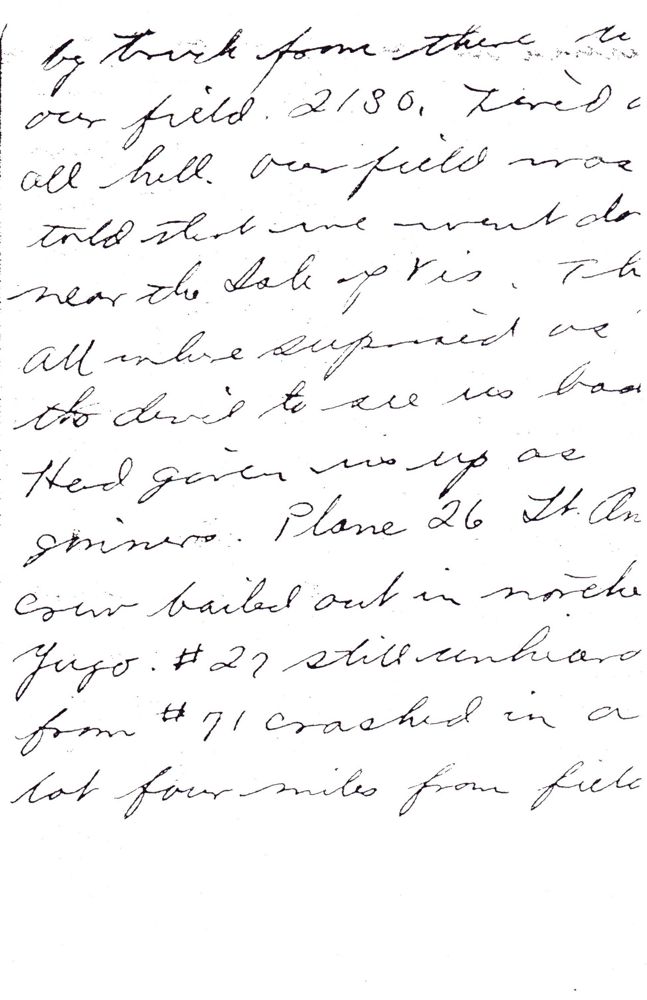 by truck from there to
our field. 2130. Tired a
all hell. Our field was
told that we went do
near the Isle of Vis. Th
all where suprised as
the devil to see us bac
Had given us up as
goners. Plane 26 Lt. An
crew bailed out in northe
Yugo. #27 still unheard
from #71 crashed in a
lot four miles from field